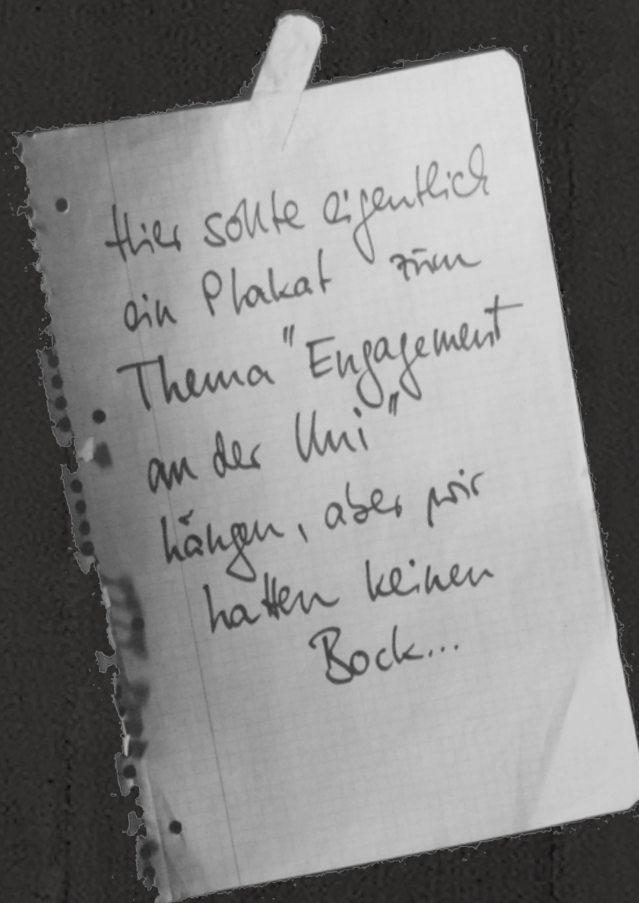 Hier sollte eigentlich
ein Plakat zum
Thema "Engagement
an der Uni"
hängen, aber wir
hatten keinen
Bock...